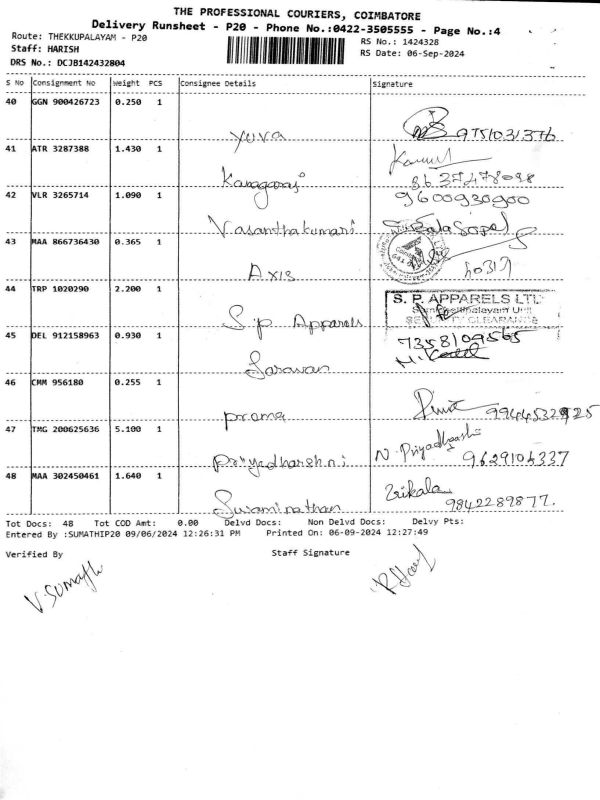 THE PROFESSIONAL COURIERS, COIMBATORE
Delivery Runsheet - P20 - Phone No.:0422-3505555 - Page No.:4
Route: THEKKUPALAYAM - P20
RS No.: 1424328
Staff: HARISH
RS Date: 06-Sep-2024
DRS No.: DCJB142432804
S No Consignment No Weight PCS Consignee Details Signature
40 GGN 900426723 0.250 1
Yuva 9751031376
41 ATR 3287388 1.430 1
Kanagaraj 8637478098
42 VLR 3265714 1.090 1
9600930900
Vasanthakumari
43 MAA 866736430 0.365 1
Axis
44 TRP 1020290 2.200 1
S. P. APPARELS LTD
S.p Apparels
SECURITY CLEARANCE
45 DEL 912158963 0.930 1
7358109565
Saravan
46 CMM 956180 0.255 1
prama
47 TMG 200625636 5.100 1
N. Priyadharshni
Priyadharshni 9629104337
48 MAA 302450461 1.640 1
Srikala
Swaminathan 9842289877.
Tot Docs: 48 Tot COD Amt: 0.00 Delvd Docs: Non Delvd Docs: Delvy Pts:
Entered By :SUMATHIP20 09/06/2024 12:26:31 PM Printed On: 06-09-2024 12:27:49
Verified By Staff Signature
V. Sumathi